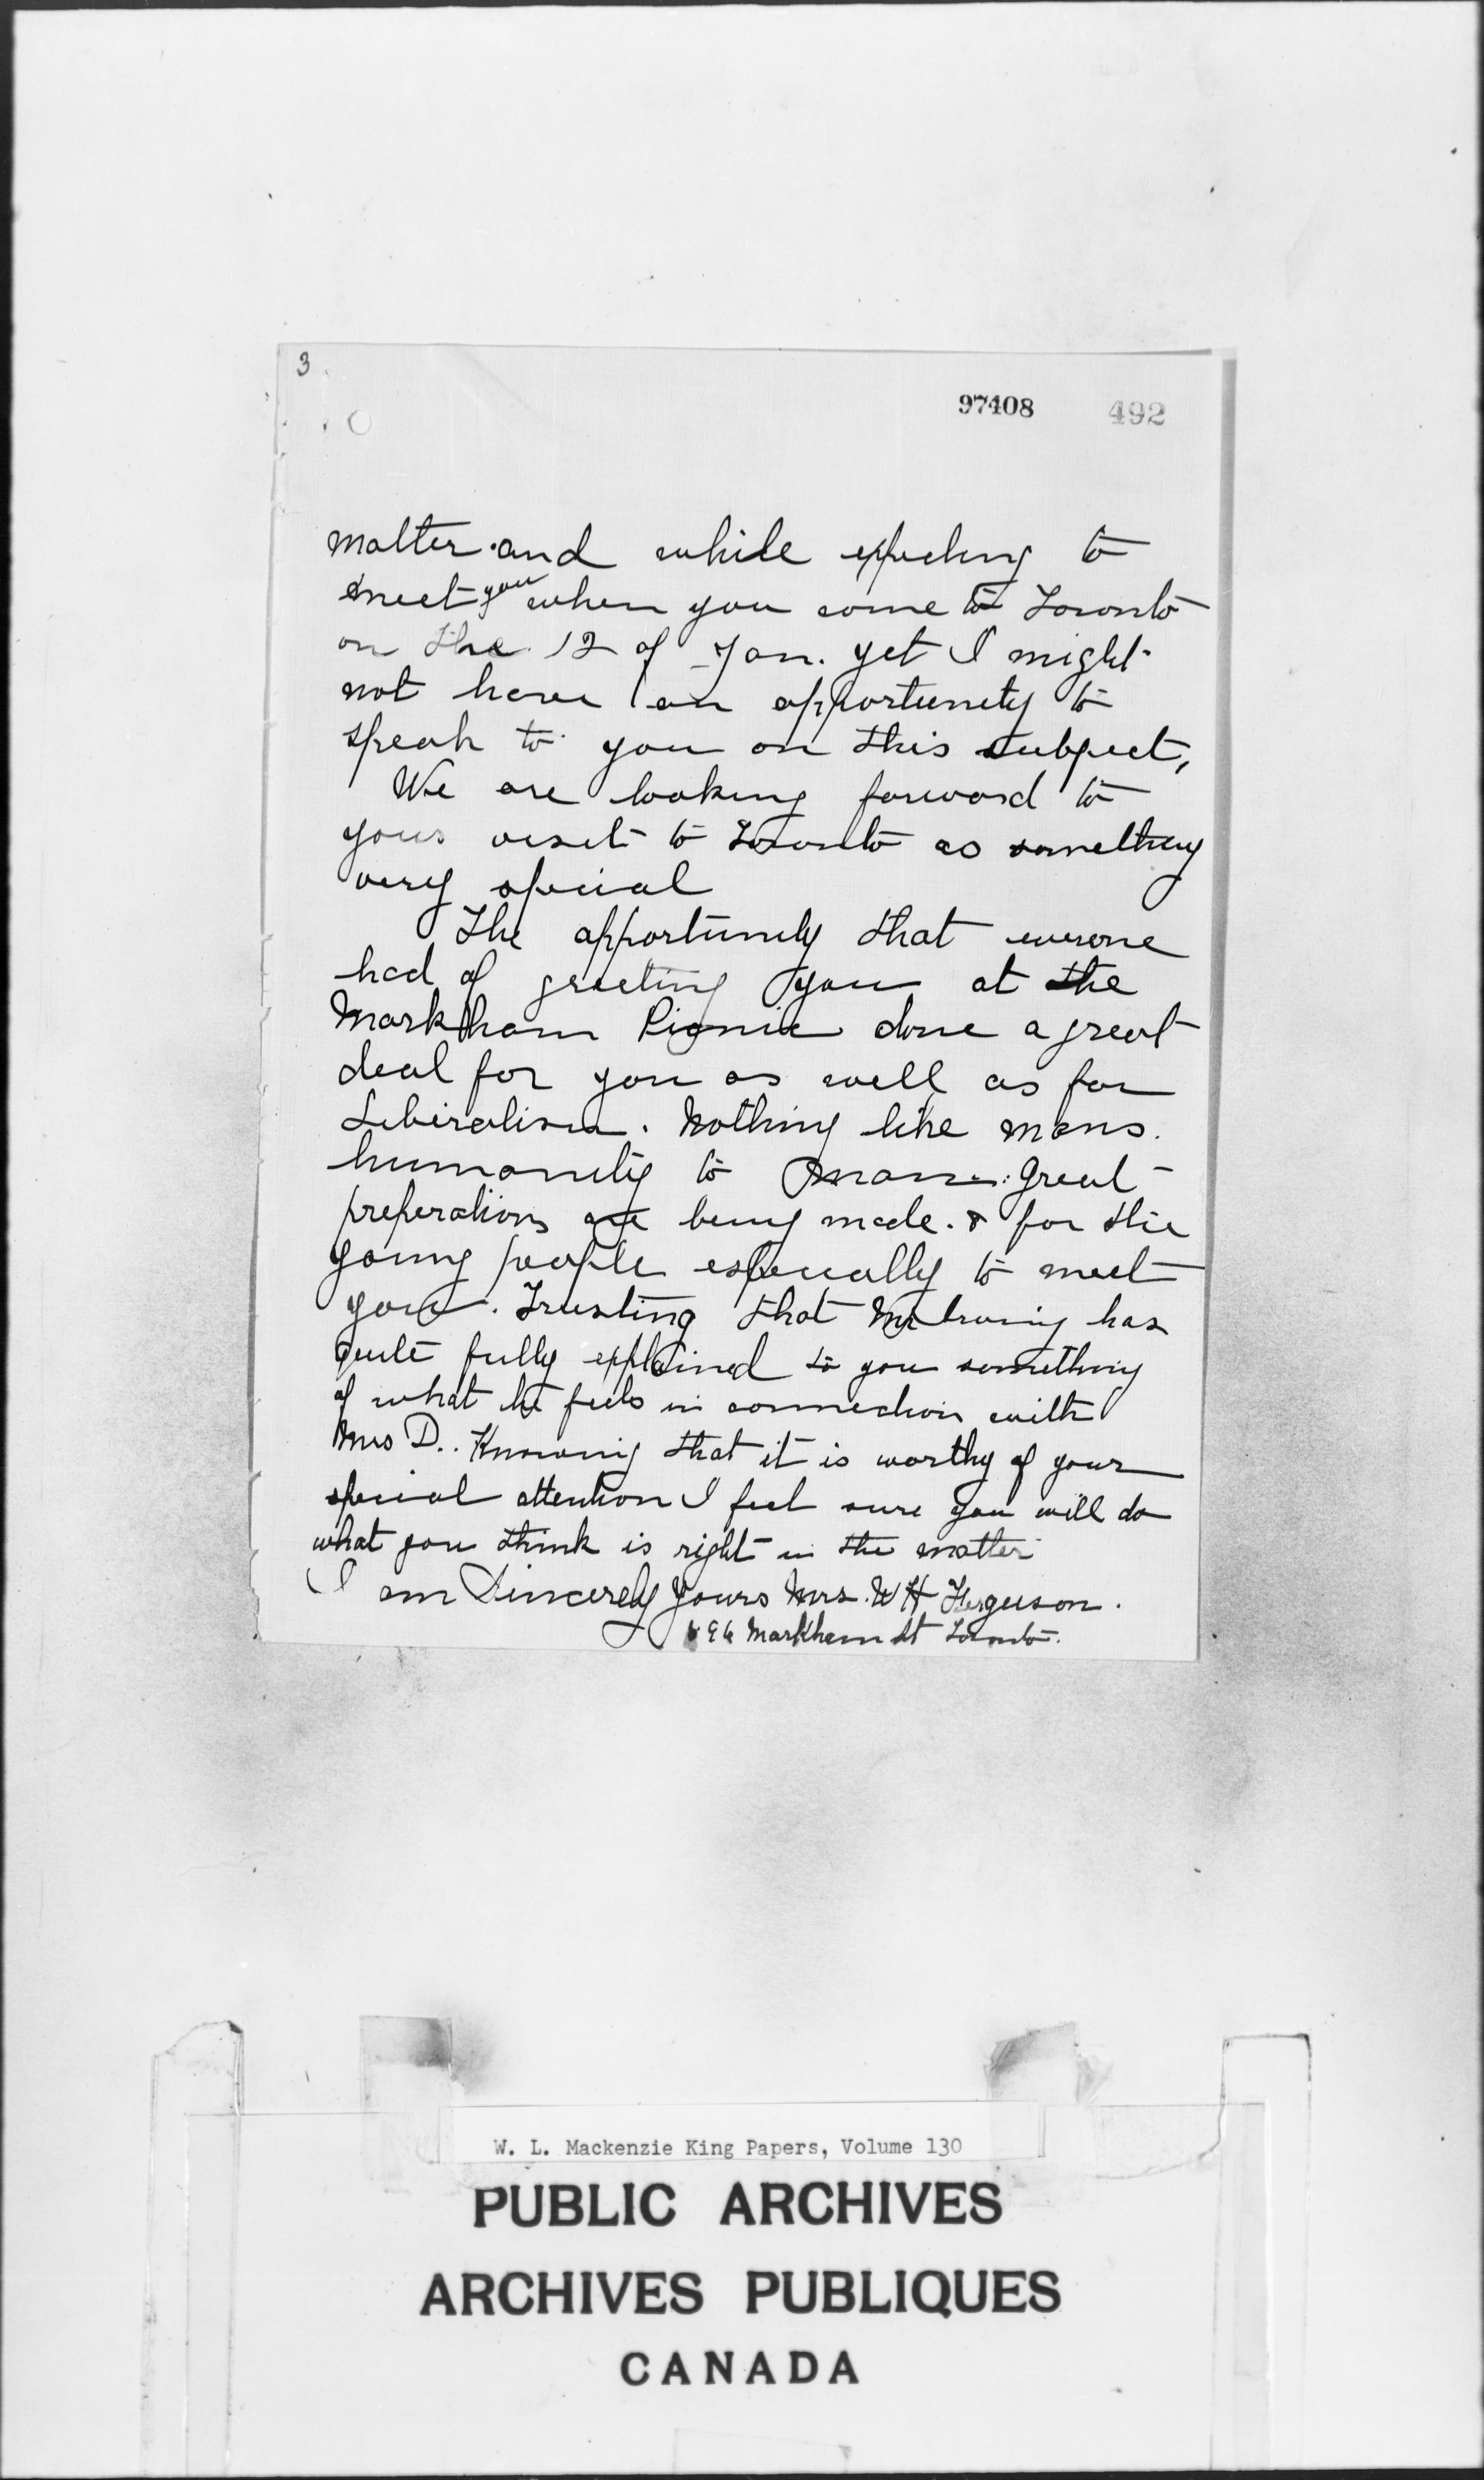 3
97408 492
matter and while expecting to
meet you when you come to Toronto
on the 12 of Jan. yet I might
not have an opportunity to
speak to you on this subject,
We are looking forward to
your visit to Toronto as something
very special
The opportunity that everone
had of greeting you at the
Markham Picnic done a great
deal for you as well as for
Liberalism. Nothing like mans
humanity to man. Great
preperations are being made. & for the
young people especially to meet
you. Trusting that Mr has
quite fully explained to you something
of what he feels in connection with
Mrs D.. Knowing that it is worthy of your
special attention I feel sure you will do
what you think is right in the matter
I am Sincerely Yours Mrs. W H Ferguson.
Markham St Toronto.
W. L. Mackenzie King Papers, Volume 130
PUBLIC ARCHIVES
ARCHIVES PUBLIQUES
CANADA